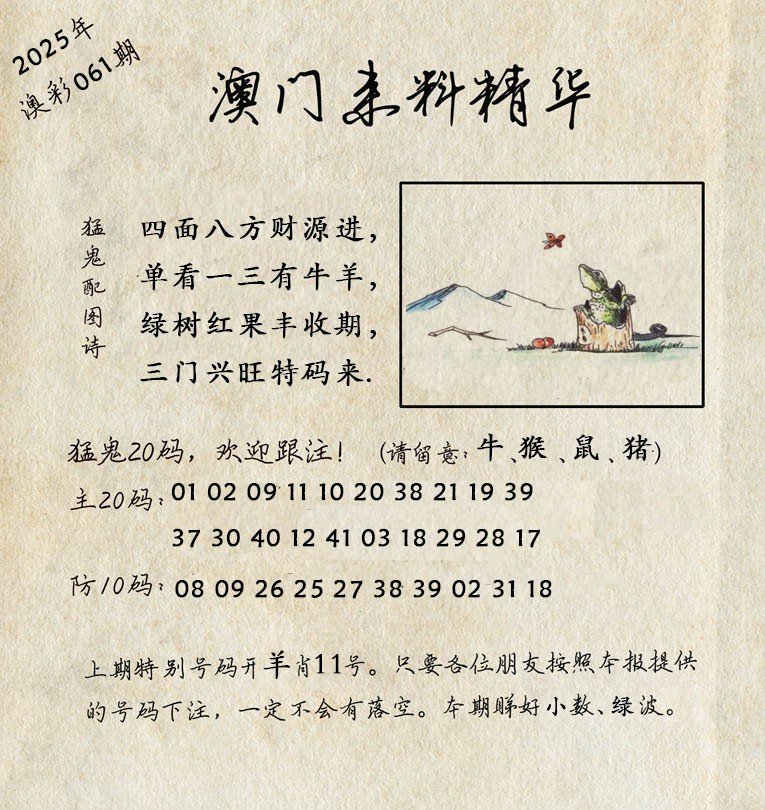 2025年
澳彩061期
澳门来料精华
猛鬼配图诗
四面八方财源进，
单看一三有牛羊，
绿树红果丰收期，
三门兴旺特码来.
猛鬼20码，欢迎跟注！（请留意：牛、猴、鼠、猪）
主20码：01 02 09 11 10 20 38 21 19 39
37 30 40 12 41 03 18 29 28 17
防10码：08 09 26 25 27 38 39 02 31 18
上期特别号码开羊肖11号。只要各位朋友按照本报提供
的号码下注，一定不会有落空。本期睇好小数、绿波。